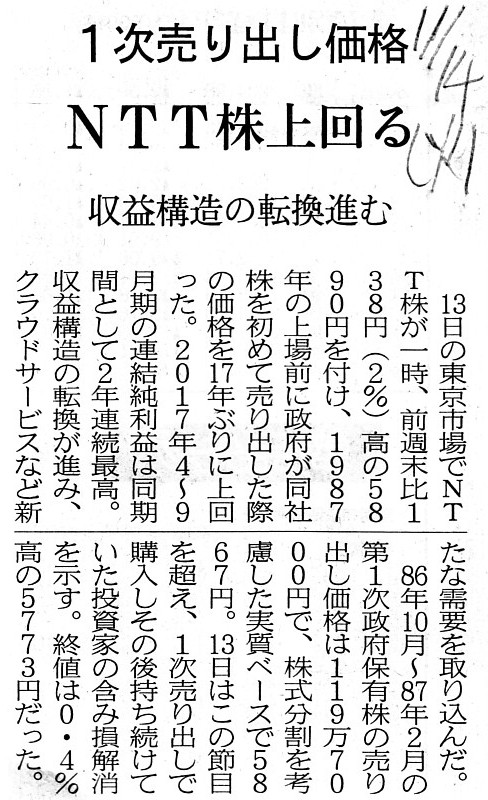 1次売り出し価格
NTT株上回る
収益構造の転換進む
11/14
13日の東京市場でNT
T株が一時、前週末比1
38円(2%)高の58
90円を付け、1987
年の上場前に政府が同社
株を初めて売り出した際
の価格を17年ぶりに上回
った。2017年4〜9
月期の連結純利益は同期
間として2年連続最高。
収益構造の転換が進み、
クラウドサービスなど新
たな需要を取り込んだ。
86年10月〜87年2月の
第1次政府保有株の売り
出し価格は119万70
00円で、株式分割を考
慮した実質ベースで58
67円。13日はこの節目
を超え、1次売り出しで
購入しその後持ち続けて
いた投資家の含み損解消
を示す。終値は0・4%
高の5773円だった。